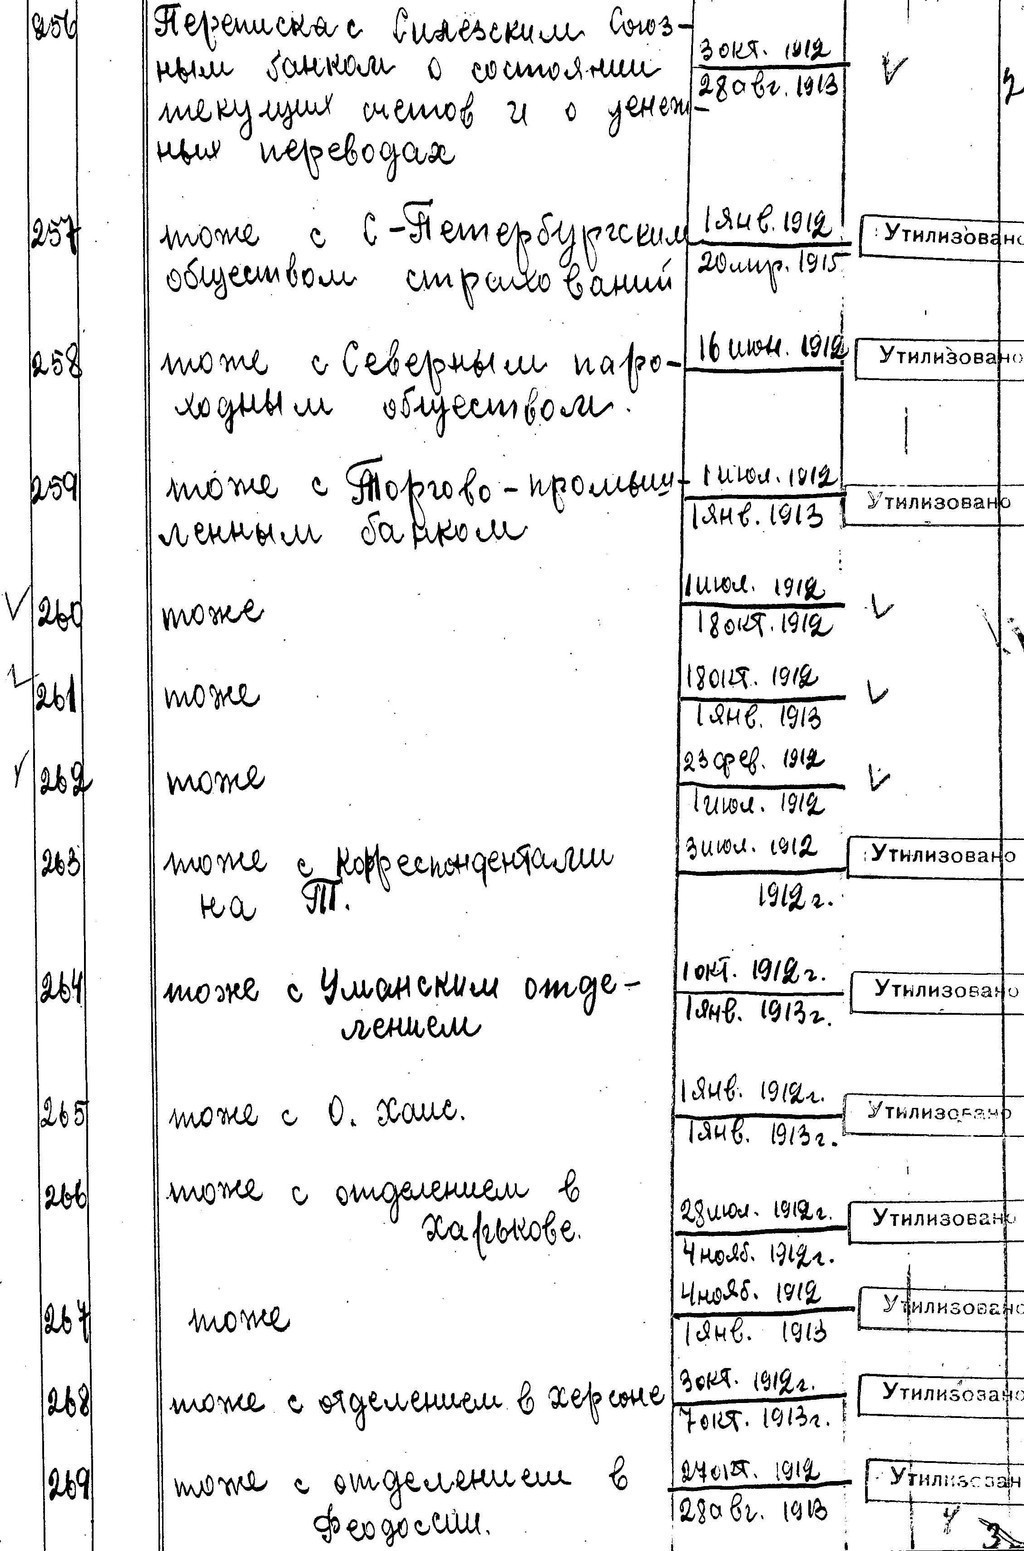 256 Переписка с Силезским Союз-
3 окт. 1912
ным банком о состоянии
28 авг. 1913
текущих счетов и о денеж-
ных переводах
257 тоже с С-Петербургским 1 янв. 1912 Утилизовано
обществом страхований 20 апр. 1915
258 тоже с Северным паро- 16 июн. 1912 Утилизовано
ходным обществом.
259 тоже с Торгово-промыш- 1 июл. 1912 Утилизовано
ленным банком 1 янв. 1913
260 тоже 1 июл. 1912
18 окт. 1912
261 тоже 18 окт. 1912
1 янв. 1913
262 тоже 23 фев. 1912
1 июл. 1912
263 тоже с корреспондентами 3 июл. 1912 Утилизовано
на Т. 1912 г.
264 тоже с Уманским отде- 1 окт. 1912 г. Утилизовано
лением 1 янв. 1913 г.
265 тоже с О. Хаис. 1 янв. 1912 г. Утилизовано
1 янв. 1913 г.
266 тоже с отделением в 28 июл. 1912 г. Утилизовано
Харькове. 4 нояб. 1912 г.
267 тоже 4 нояб. 1912 Утилизовано
1 янв. 1913
268 тоже с отделением в Херсоне 3 окт. 1912 г. Утилизовано
7 окт. 1913 г.
269 тоже с отделением в 27 окт. 1912 Утилизован
Феодоссии. 28 авг. 1913